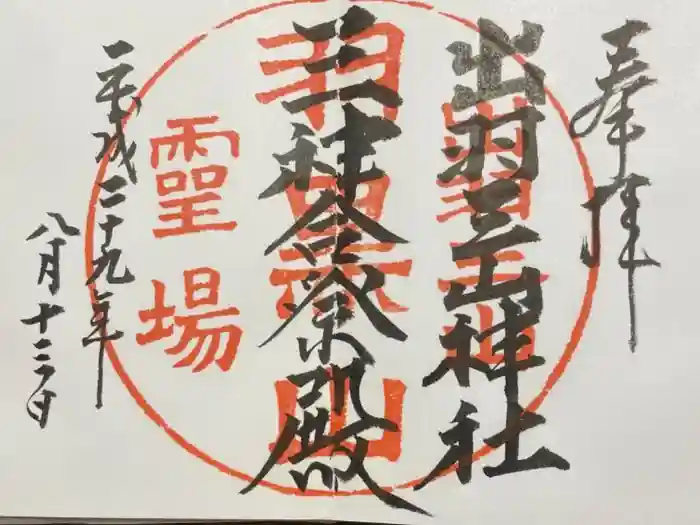 奉拝
出羽三山神社
三神合祭殿
平成二十九年
八月十三日
羽黒山
霊場